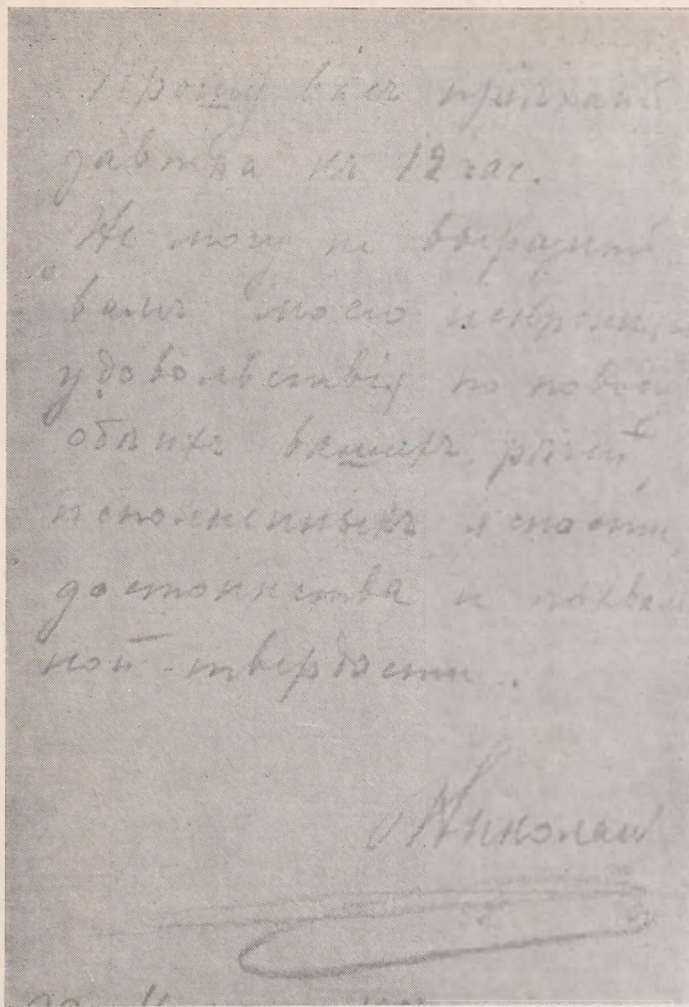 Прошу васъ пріѣхать
завтра къ 12 час.
Не могу не выразить
вамъ моего искренн
удовольствія по повод
обѣихъ вашихъ рѣчей,
исполненныхъ ясности,
достоинства и похваль
ной твердости.
Николай